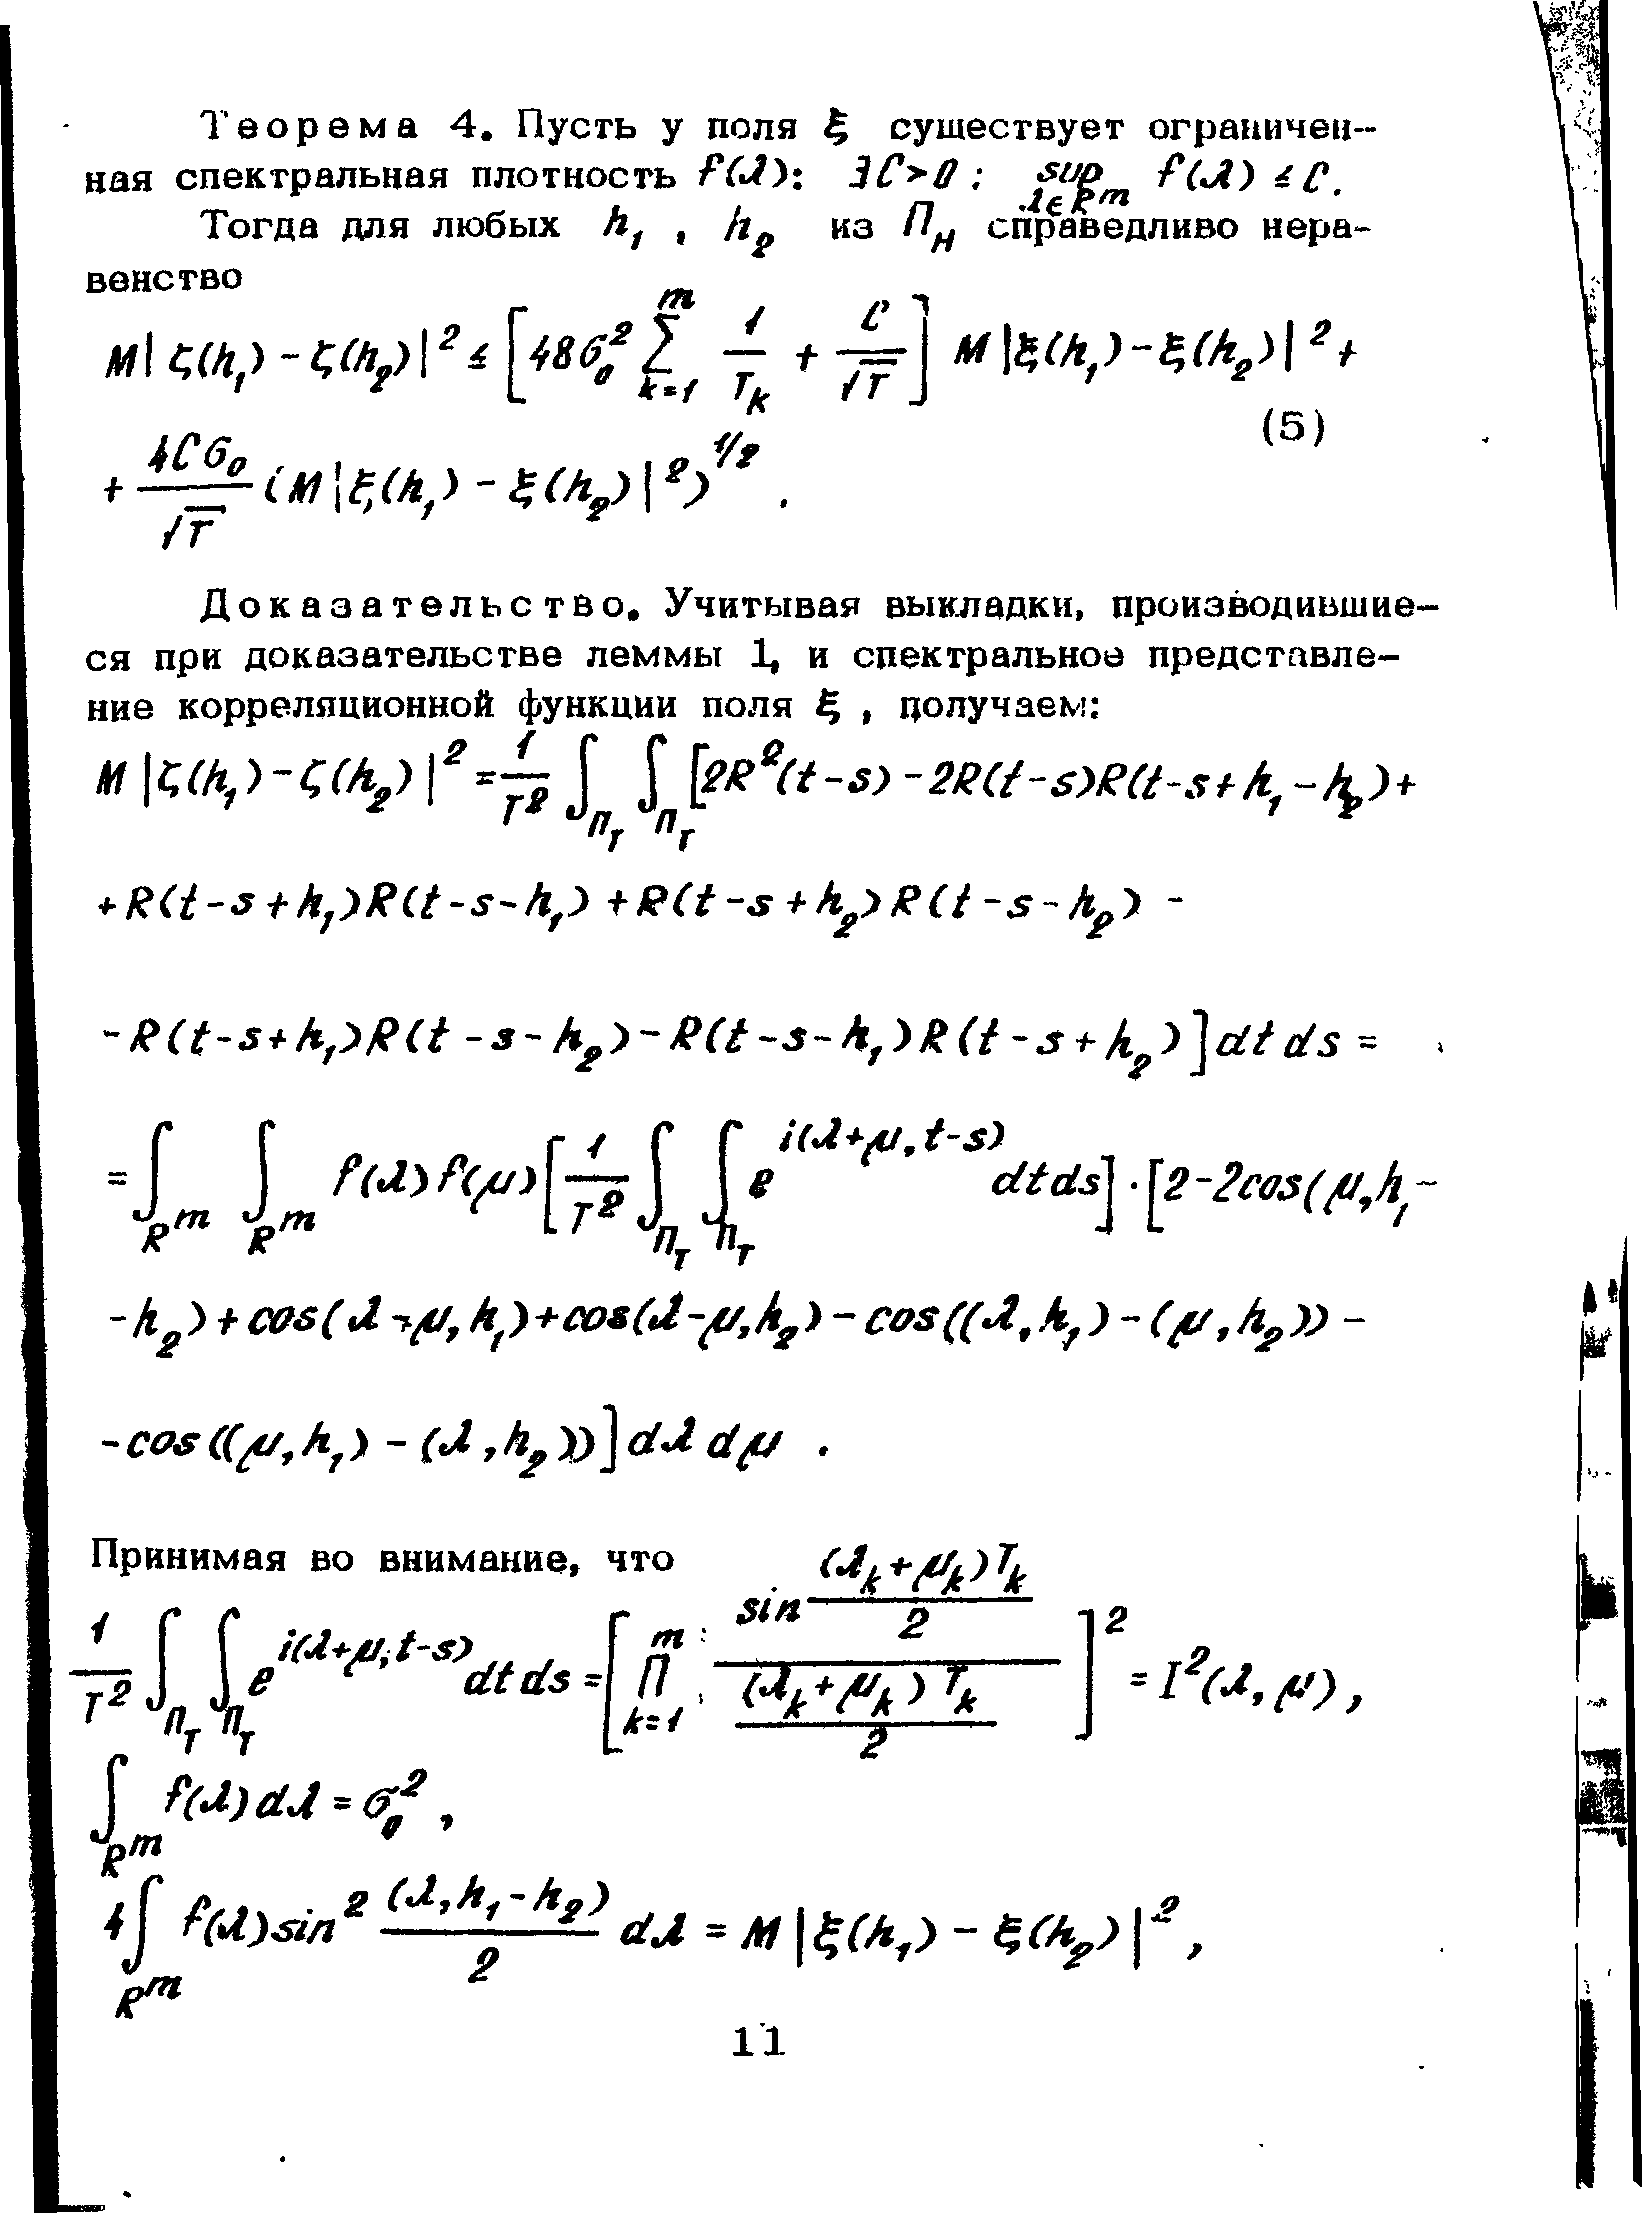 Теорема 4. Пусть у поля ξ существует ограничен-
ная спектральная плотность f(λ): ∃C>0 : sup_{λ∈R^m} f(λ) ≤ C.
Тогда для любых h₁ , h₂ из Π_H справедливо нера-
венство
M|ζ(h₁)-ζ(h₂)|² ≤ [48σ₀² ∑_{k=1}^{m} 1/T_k + C/√T] M|ξ(h₁)-ξ(h₂)|² +
(5)
+ 4Cσ₀/√T (M|ξ(h₁)-ξ(h₂)|²)^{1/2} .
Доказательство. Учитывая выкладки, производившие-
ся при доказательстве леммы 1, и спектральное представле-
ние корреляционной функции поля ξ , получаем:
M|ζ(h₁)-ζ(h₂)|² = 1/T² ∫_{Π_T} ∫_{Π_T} [2R²(t-s)-2R(t-s)R(t-s+h₁-h₂)+
+R(t-s+h₁)R(t-s-h₁)+R(t-s+h₂)R(t-s-h₂)-
-R(t-s+h₁)R(t-s-h₂)-R(t-s-h₁)R(t-s+h₂)]dt ds =
= ∫_{R^m} ∫_{R^m} f(λ)f(μ)[1/T² ∫_{Π_T} ∫_{Π_T} e^{i(λ+μ,t-s)} dtds]·[2-2cos(μ,h₁-
-h₂)+cos(λ-μ,h₁)+cos(λ-μ,h₂)-cos((λ,h₁)-(μ,h₂))-
-cos((μ,h₁)-(λ,h₂))]dλ dμ .
Принимая во внимание, что
1/T² ∫_{Π_T} ∫_{Π_T} e^{i(λ+μ,t-s)} dt ds = [∏_{k=1}^{m} sin((λ_k+μ_k)T_k/2) / ((λ_k+μ_k)T_k/2)]² = I²(λ,μ),
∫_{R^m} f(λ)dλ = σ₀² ,
4∫_{R^m} f(λ)sin² (λ,h₁-h₂)/2 dλ = M|ξ(h₁)-ξ(h₂)|²,
11